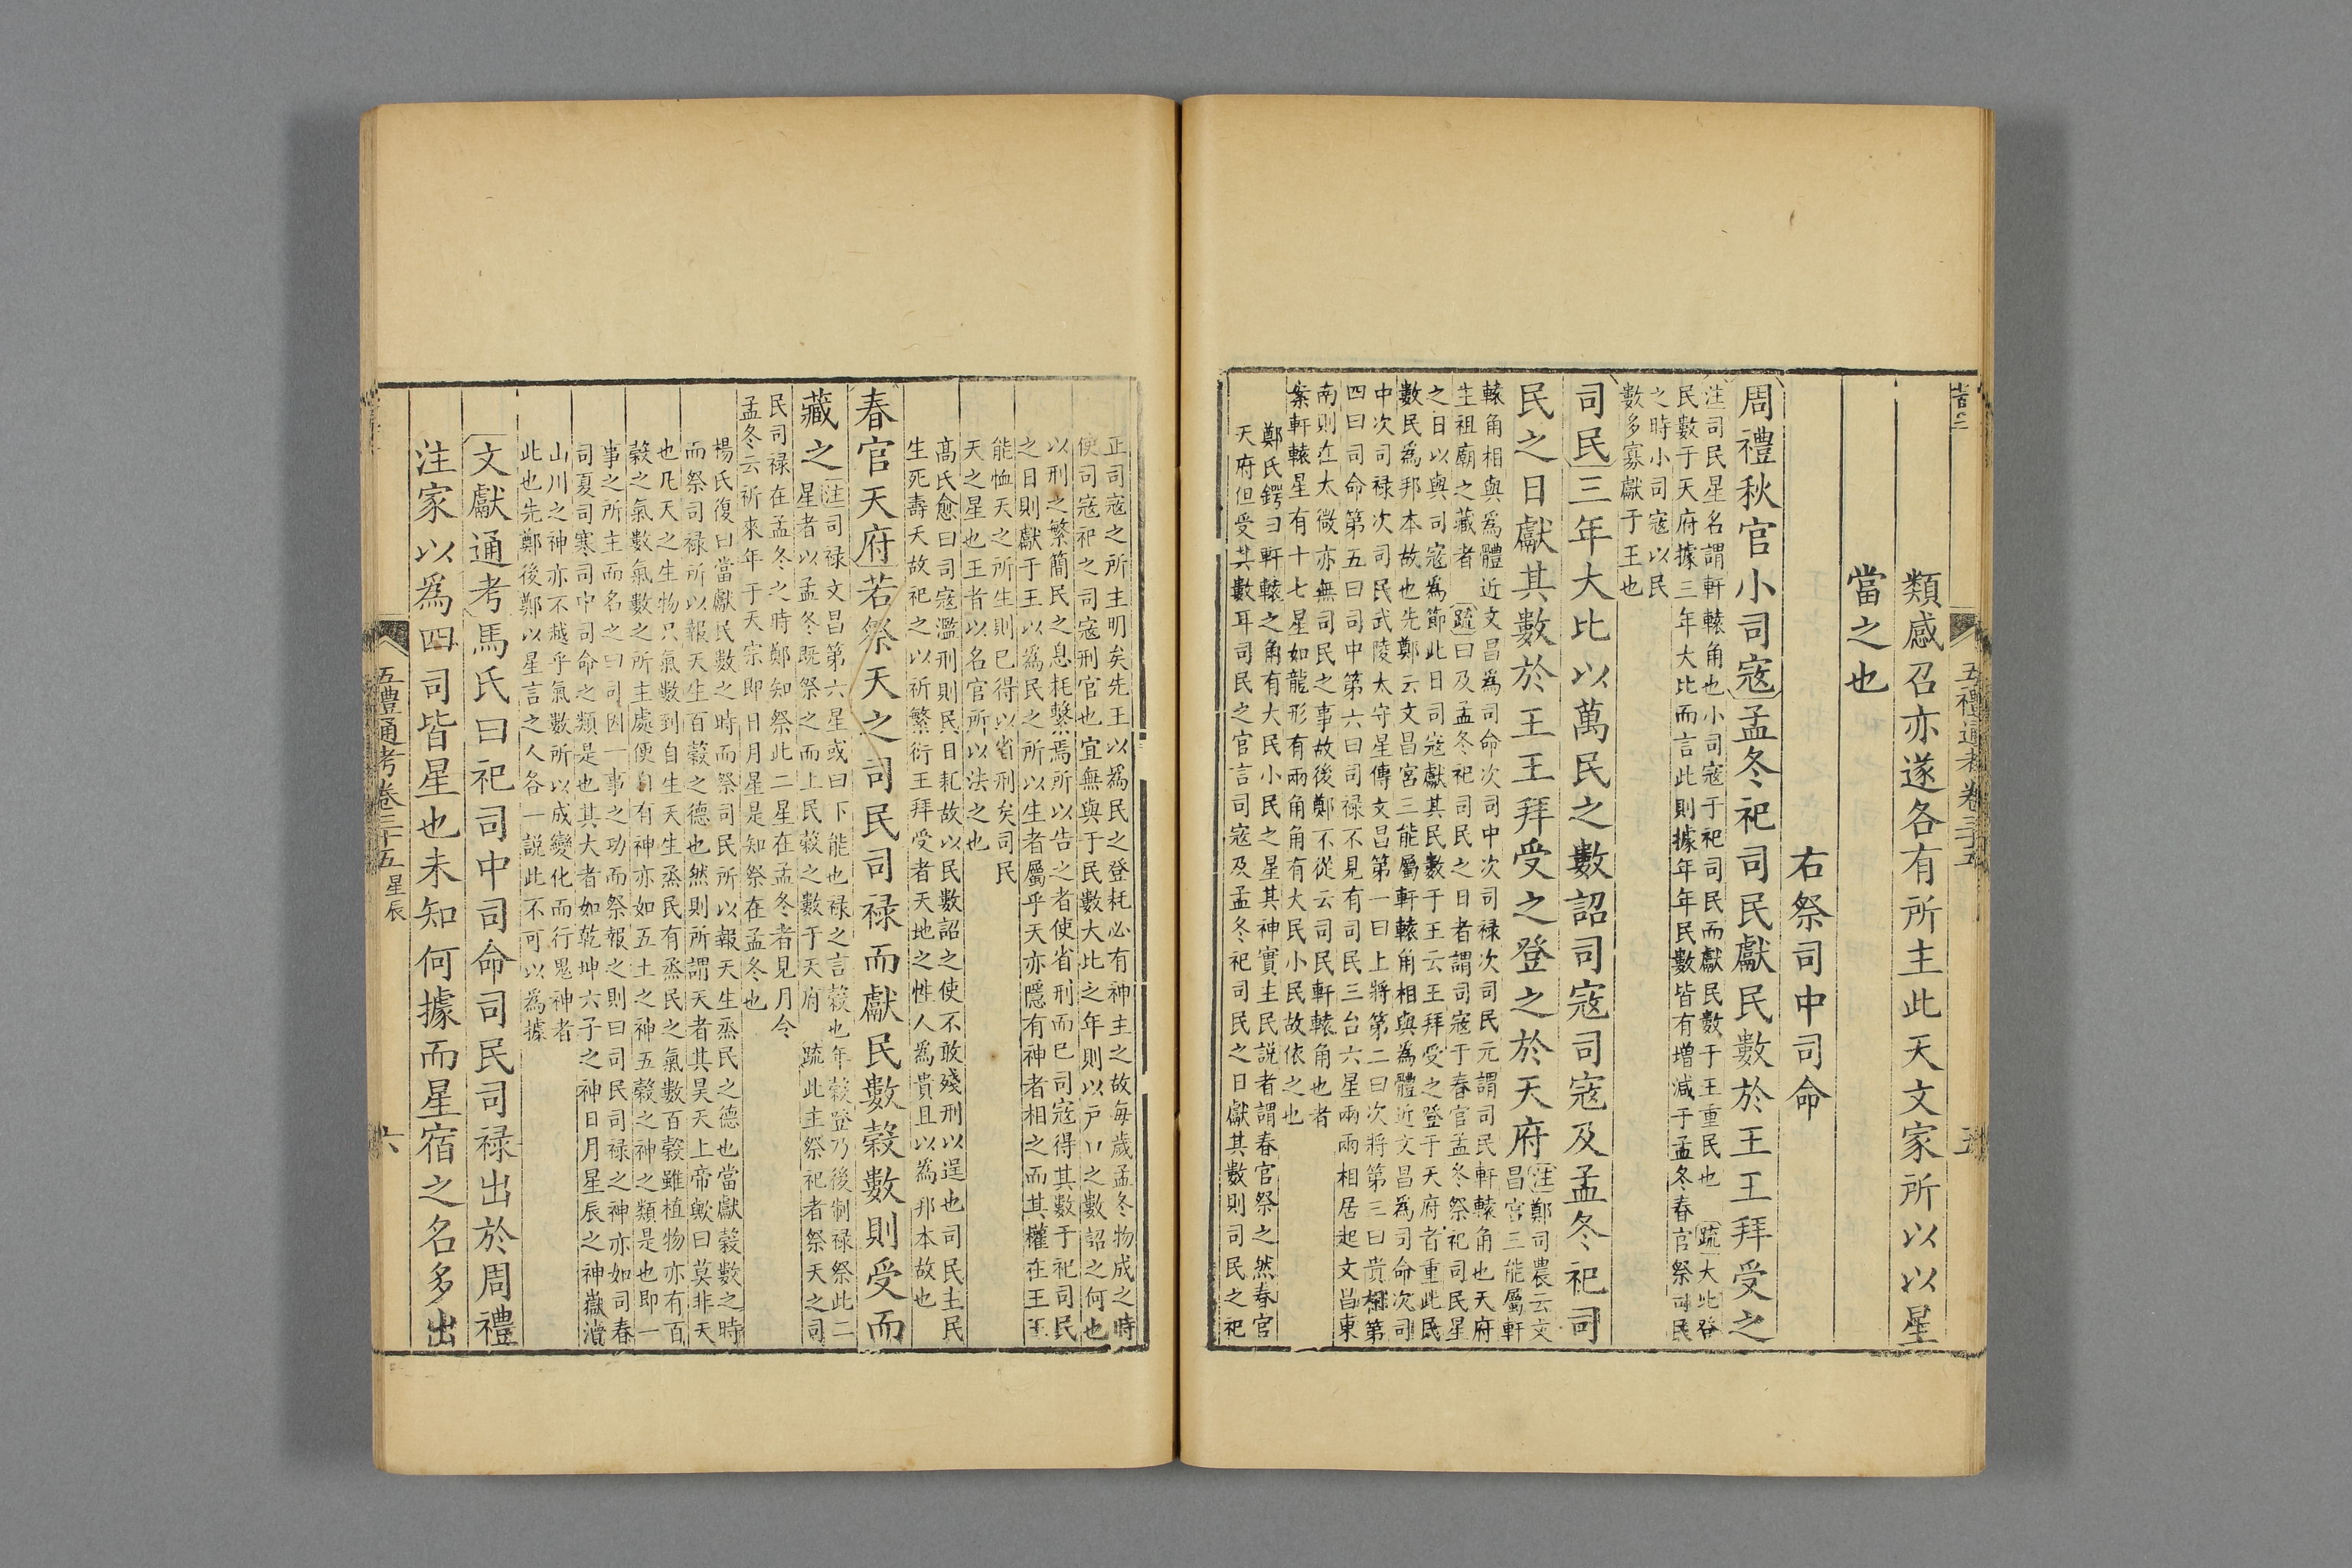 吉三
五禮通考卷三十五
五
類感召亦遂各有所主此天文家所以以星
當之也
右祭司中司命
周禮秋官小司寇孟冬祀司民獻民數於王王拜受之
注司民星名謂軒轅角也小司寇于祀司民而獻民數于王重民也 疏大比登
民數于天府據三年大比而言此則據年年民數皆有增減于孟冬春官祭司民
之時小司寇以民
數多寡獻于王也
司民三年大比以萬民之數詔司寇司寇及孟冬祀司
民之日獻其數於王王拜受之登之於天府
注鄭司農云文
昌宮三能屬軒
轅角相與為體近文昌為司命次司中次司祿次司民元謂司民軒轅角也天府
生祖廟之藏者 疏曰及孟冬祀司民之日者謂司寇于春官孟冬祭祀司民星
之日以與司寇為節此日司寇獻其民數于王云王拜受之登于天府者重此民
數民為邦本故也先鄭云文昌宮三能屬軒轅角相與為體近文昌為司命次司
中次司祿次司民武陵太守星傳文昌第一曰上將第二曰次將第三曰貴相第
四曰司命第五曰司中第六曰司祿不見有司民三台六星兩兩相居起文昌東
南則在太微亦無司民之事故後鄭不從云司民軒轅角也者
案軒轅星有十七星如龍形有兩角角有大民小民故依之也
鄭氏鍔曰軒轅之角有大民小民之星其神實主民說者謂春官祭之然春官
天府但受其數耳司民之官言司寇及孟冬祀司民之日獻其數則司民之祀
正司寇之所主明矣先王以為民之登耗必有神主之故每歲孟冬物成之時
使司寇祀之司寇刑官也宜無與于民數大比之年則以戶口之數詔之何也
以刑之繁簡民之息耗繫焉所以告之者使省刑而已司寇得其數于祀司民
之日則獻于王以為民之所以生者屬乎天亦隱有神者相之而其權在王王
能恤天之所生則已得以省刑矣司民
天之星也王者以名官所以法之也
高氏愈曰司寇濫刑則民日耗故以民數詔之使不敢殘刑以逞也司民主民
生死壽夭故祀之以祈繁衍王拜受者天地之性人為貴且以為邦本故也
春官天府若祭天之司民司祿而獻民數穀數則受而
藏之
注司祿文昌第六星或曰下能也祿之言穀也年穀登乃後制祿祭此二
星者以孟冬既祭之而上民穀之數于天府 疏此主祭祀者祭天之司
民司祿在孟冬之時鄭知祭此二星在孟冬者見月令
孟冬云祈來年于天宗即日月星是知祭在孟冬也
楊氏復曰當獻民數之時而祭司民所以報天生烝民之德也當獻穀數之時
而祭司祿所以報天生百穀之德也然則所謂天者其昊天上帝歟曰莫非天
也凡天之生物只氣數到自生天生烝民有烝民之氣數百穀雖植物亦有百
穀之氣數氣數之所主處便自有神亦如五土之神五穀之神之類是也即一
事之所主而名之曰司因一事之功而祭報之則曰司民司祿之神亦如司春
司夏司寒司中司命之類是也其大者如乾坤六子之神日月星辰之神嶽瀆
山川之神亦不越乎氣數所以成變化而行鬼神者
此也先鄭後鄭以星言之人各一說此不可以為據
文獻通考馬氏曰祀司中司命司民司祿出於周禮
注家以為四司皆星也未知何據而星宿之名多出
五禮通考卷三十五 星辰
六